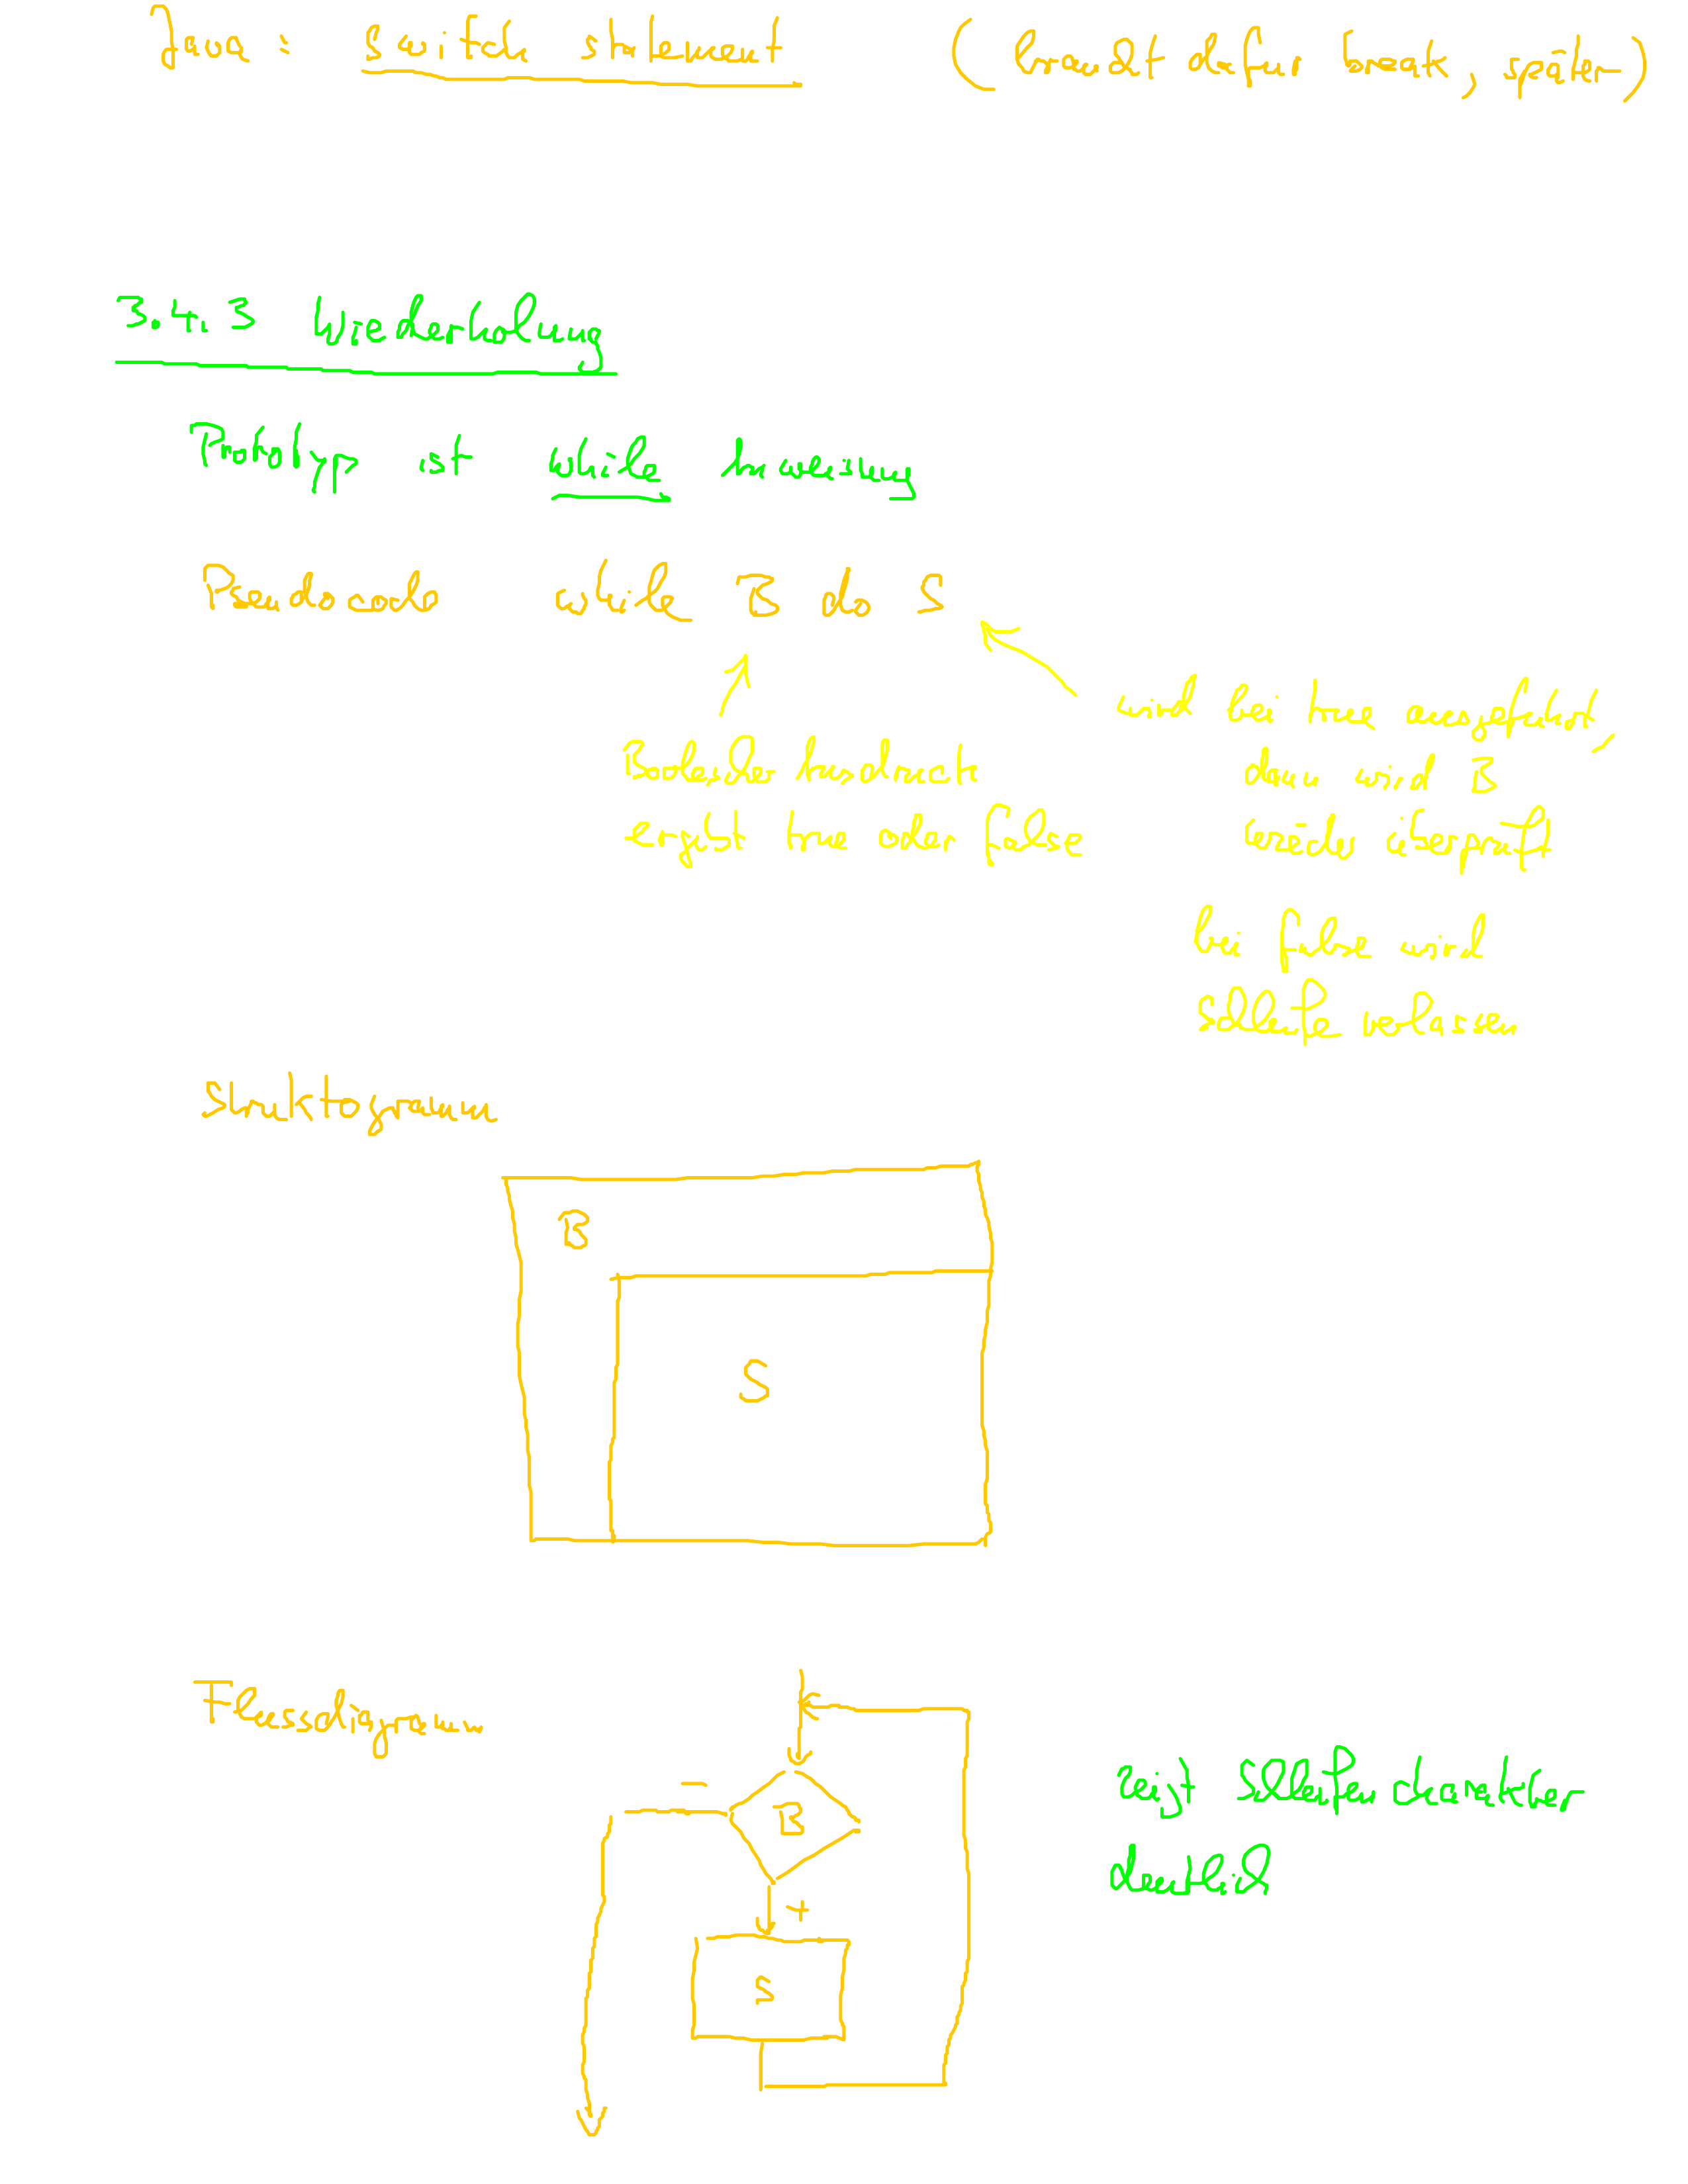 Java: switch statement (braucht dafür break, später)
3.4.3 Wiederholung
Prototyp ist while Anweisung
Pseudocode while B do S
Boolescher Ausdruck
ergibt true oder false
wird bei true ausgeführt,
dann wird B
erneut überprüft
bei false wird
Schleife verlassen
Struktogramm
B
S
Flussdiagramm
-
B
+
S
zeigt Schleifencharakter
deutlich